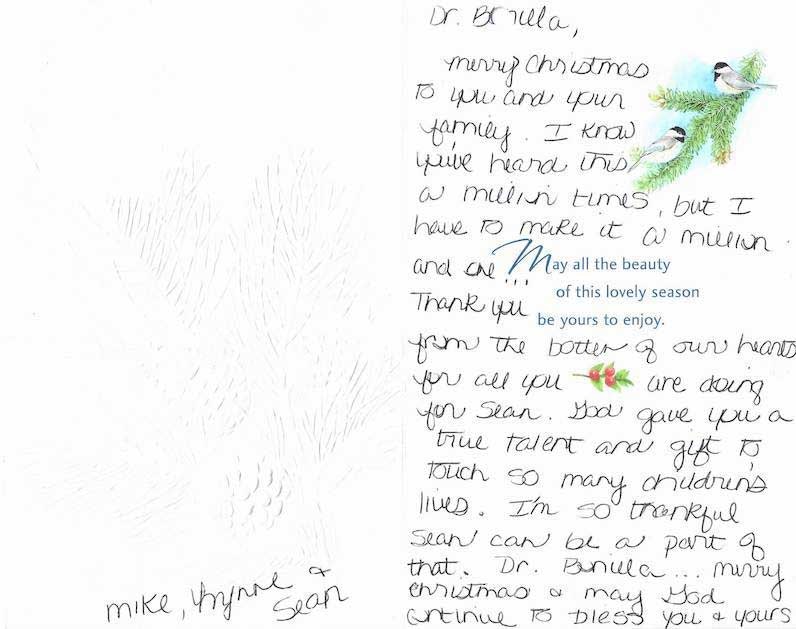 Dr. Bonilla,
merry Christmas
to you and your
family. I know
you've heard this
a million times, but I
have to make it a million
and one ...
May all the beauty
of this lovely season
be yours to enjoy.
Thank you
from the bottem of our hearts
for all you are doing
for Sean. God gave you a
true talent and gift to
touch so many children's
lives. I'm so thankful
Sean can be a part of
that. Dr. Bonilla... merry
christmas & may God
continue to bless you & yours
mike, &
Sean